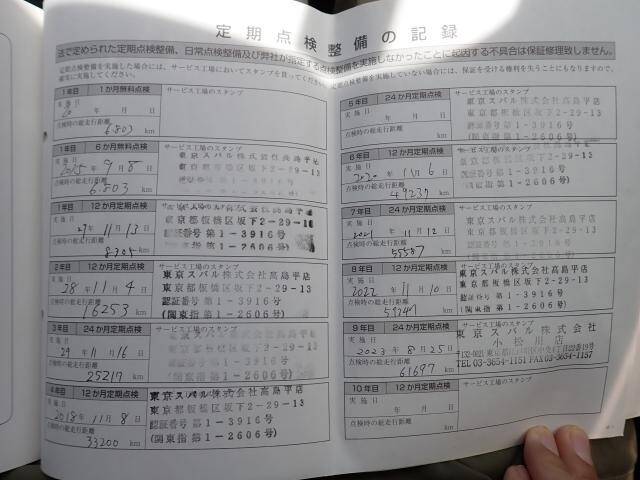 定期点検整備の記録
法で定められた定期点検整備、日常点検整備及び弊社が指定する点検整備を実施しなかったことに起因する不具合は保証修理致しません。
定期点検整備を実施した場合には、サービス工場においてスタンプを貰ってください。定期点検整備を実施していない場合には、保証を受ける権利を失うこともありますので、
確実に実施してください。
1年目 1か月無料点検 サービス工場のスタンプ
実施日
年 月 日
点検時の総走行距離
6.803 km
1年目 6か月無料点検 サービス工場のスタンプ
実施日
2015年 9月 8日
点検時の総走行距離
6.803 km
東京スバル株式会社高島平店
東京都板橋区坂下2-29-13
認証番号第1-3916号
(関東指第1-2606号)
1年目 12か月定期点検 サービス工場のスタンプ
実施日
27年 11月 13日
点検時の総走行距離
8305 km
東京スバル株式会社高島平店
東京都板橋区坂下2-29-13
認証番号第1-3916号
(関東指第1-2606号)
2年目 12か月定期点検 サービス工場のスタンプ
実施日
28年 11月 4日
点検時の総走行距離
16253 km
東京スバル株式会社高島平店
東京都板橋区坂下2-29-13
認証番号第1-3916号
(関東指第1-2606号)
3年目 24か月定期点検 サービス工場のスタンプ
実施日
29年 11月 16日
点検時の総走行距離
25217 km
東京スバル株式会社高島平店
東京都板橋区坂下2-29-13
認証番号第1-3916号
(関東指第1-2606号)
4年目 12か月定期点検 サービス工場のスタンプ
実施日
2018年 11月 8日
点検時の総走行距離
33200 km
東京スバル株式会社高島平店
東京都板橋区坂下2-29-13
認証番号第1-3916号
(関東指第1-2606号)
5年目 24か月定期点検 サービス工場のスタンプ
実施日
年 月 日
点検時の総走行距離
km
東京スバル株式会社高島平店
東京都板橋区坂下2-29-13
認証番号第1-3916号
(関東指第1-2606号)
6年目 12か月定期点検 サービス工場のスタンプ
実施日
2020年 11月 6日
点検時の総走行距離
49237 km
東京スバル株式会社高島平店
東京都板橋区坂下2-29-13
認証番号第1-3916号
(関東指第1-2606号)
7年目 24か月定期点検 サービス工場のスタンプ
実施日
2021年 11月 12日
点検時の総走行距離
55587 km
東京スバル株式会社高島平店
東京都板橋区坂下2-29-13
認証番号第1-3916号
(関東指第1-2606号)
8年目 12か月定期点検 サービス工場のスタンプ
実施日
2022年 11月 10日
点検時の総走行距離
km
東京スバル株式会社高島平店
東京都板橋区坂下2-29-13
認証番号第1-3916号
(関東指第1-2606号)
9年目 24か月定期点検 サービス工場のスタンプ
実施日
2023年 8月 25日
点検時の総走行距離
61697 km
東京スバル株式会社
小松川店
TEL03-3654-1151 FAX03-3654-1157
10年目 12か月定期点検 サービス工場のスタンプ
実施日
年 月 日
点検時の総走行距離
km